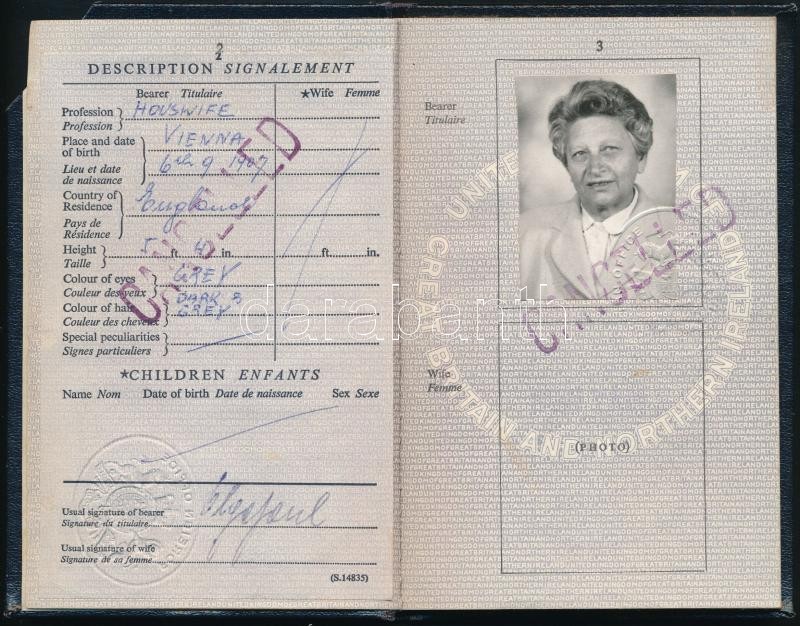 2
DESCRIPTION SIGNALEMENT
Bearer Titulaire ★Wife Femme
Profession HOUSWIFE
Profession
Place and date of birth VIENNA
6th 9 1907
Lieu et date de naissance
Country of Residence England
Pays de Résidence
Height 5 ft. in. ft. in.
Taille
Colour of eyes GREY
Couleur des yeux
Colour of hair DARK & GREY
Couleur des cheveux
Special peculiarities
Signes particuliers
CANCELLED
★CHILDREN ENFANTS
Name Nom Date of birth Date de naissance Sex Sexe
Usual signature of bearer
Signature du titulaire
Usual signature of wife
Signature de sa femme
(S.14835)
3
Bearer
Titulaire
CANCELLED
UNITED KINGDOM OF GREAT BRITAIN AND NORTHERN IRELAND
Wife
Femme
(PHOTO)
darabanth